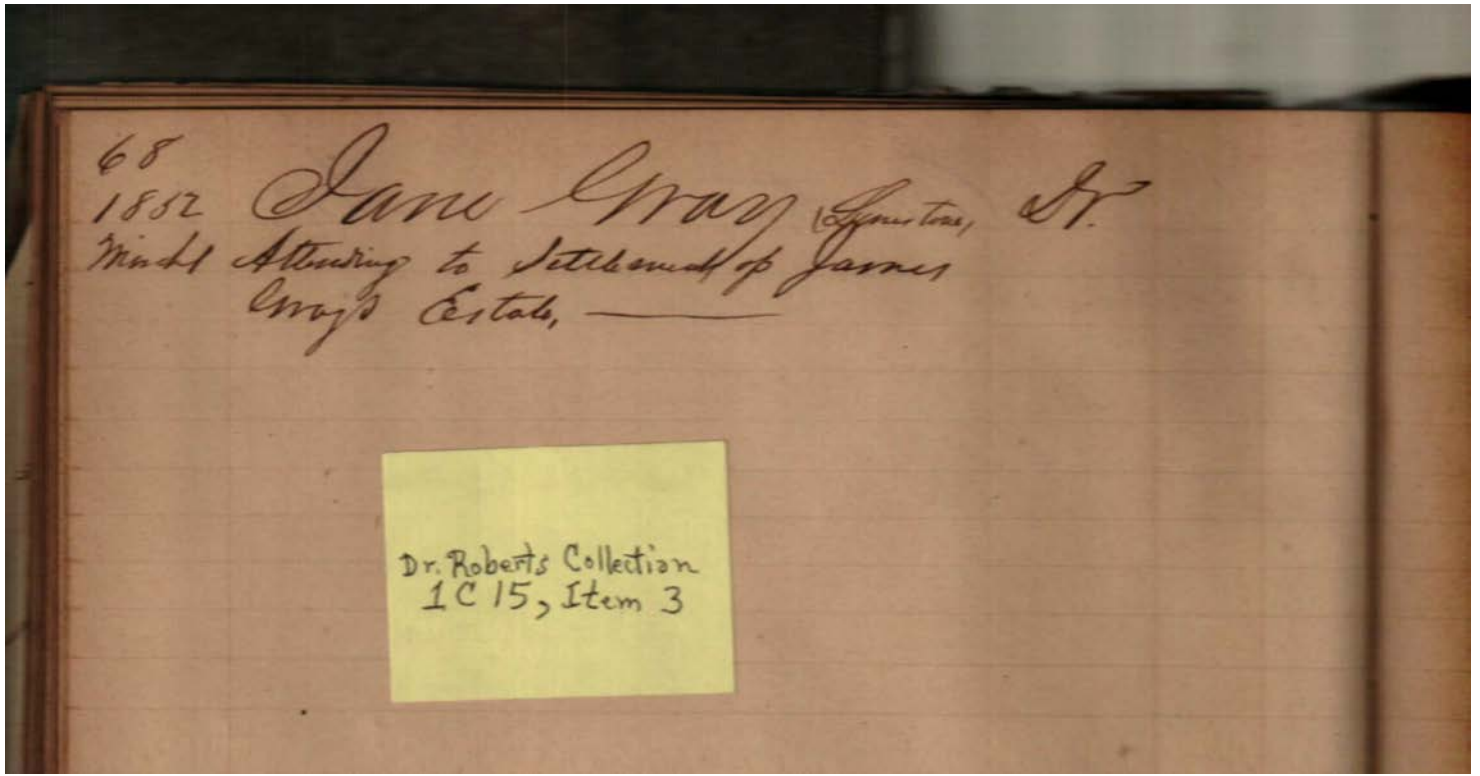 68
1852 Jane Gray (Limestone) Dr.
Attending to Settlement of James
Gray's Estate,
Dr. Roberts Collection
1 C 15, Item 3